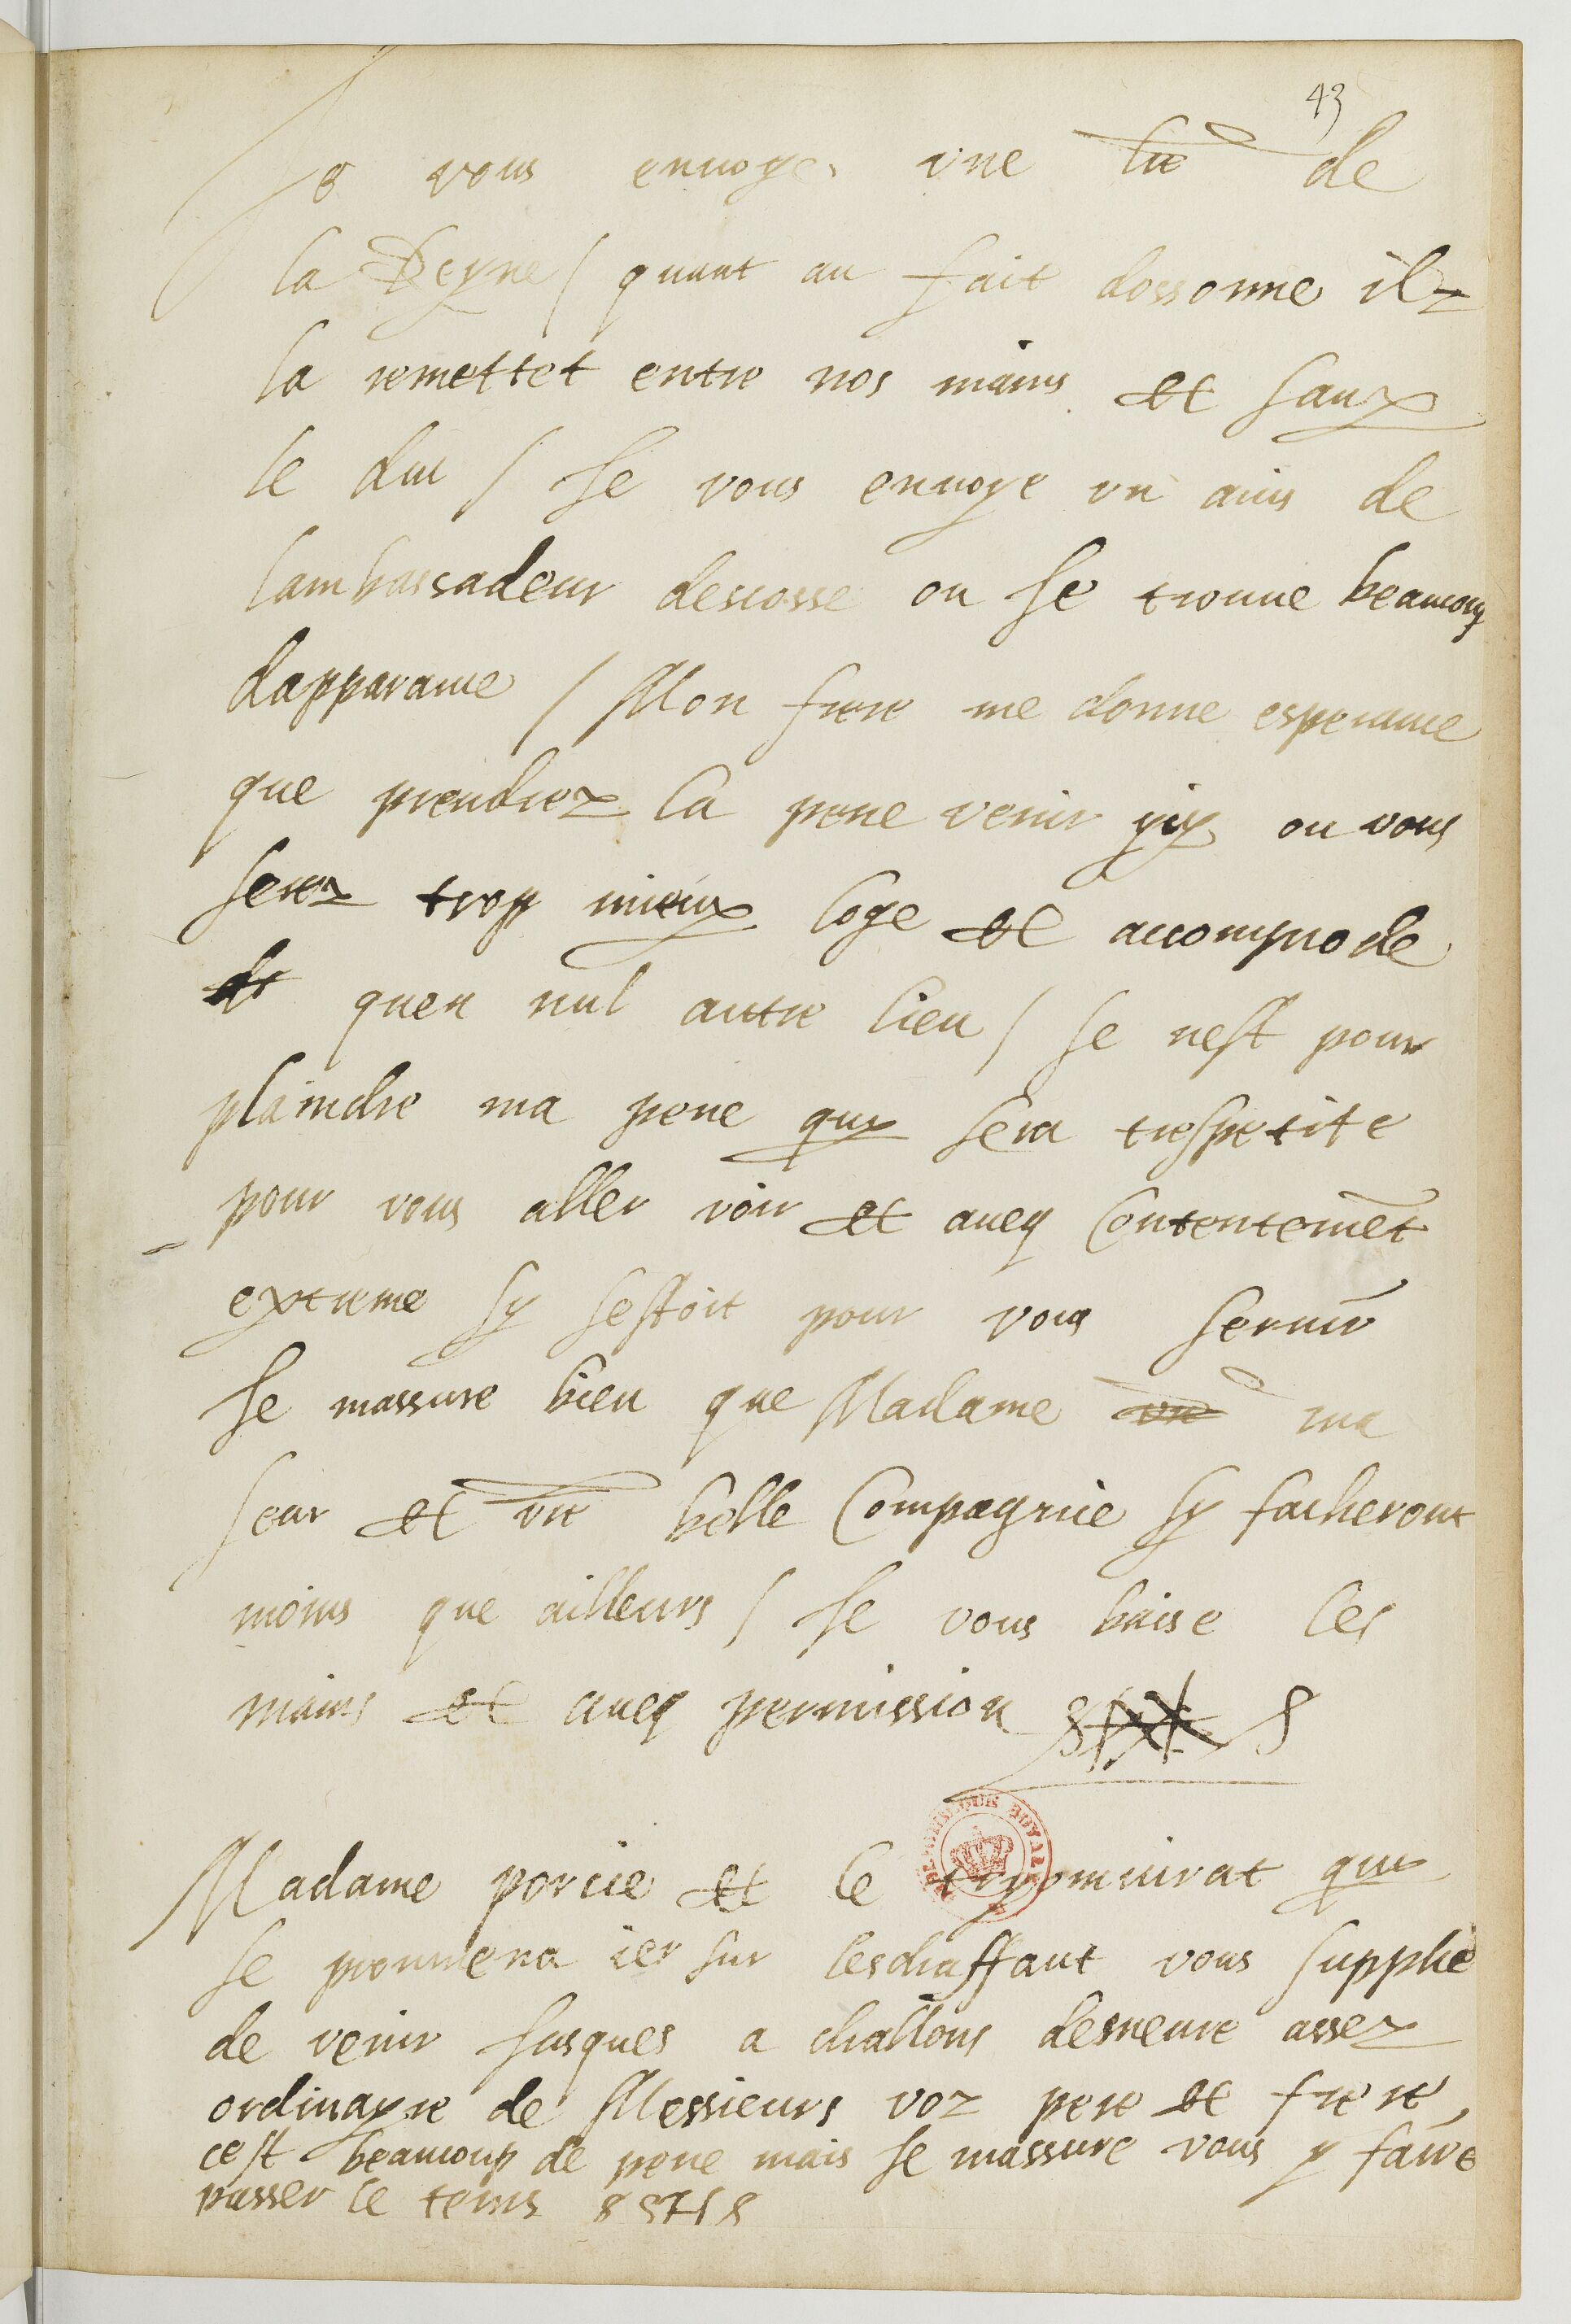 43
Je vous envoye une lre de
la Reyne / quant au fait dossonne ilz
la remettet entre nos mains et sauf
le duc / Je vous envoye un avis de
lambassadeur descosse ou Je trouve beaucoup
dapparance / Mon frere me donne esperance
que prendrez la pene venir ycy ou vous
serez trop mieux loge et accompnode
quen nul autre lieu / se nest pour
plaindre ma pene quy sera trespetite
pour vous aller voir et aveq Contentemēt
extreme sy sestoit pour vous servir
Je massure bien que Madame vre ma
seur et vre belle Compagnie sy facheront
moins que ailleurs / Je vous baise les
mains et aveq permission
Madame porcie et le tryomvirat quy
se proumena ier sur leschaffaut vous supplie
de venir Jusques a challons demeure assez
ordinayre de Messieurs voz pere et frere,
cest beaucoup de pene mais Je massure vous y faire
passer le tems